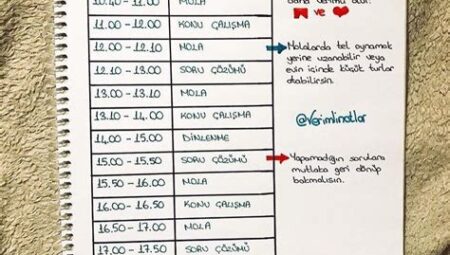 10.40 - 11.00 MOLA
11.00 - 12.00 KONU ÇALIŞMA
12.00 - 12.10 MOLA
12.10 - 13.00 SORU ÇÖZÜMÜ
13.00 - 13.10 MOLA
13.10 - 14.00 KONU ÇALIŞMA
14.00 - 15.00 DİNLENME
15.00 - 15.50 SORU ÇÖZÜMÜ
15.50 - 16.00 MOLA
16.00 - 16.50 KONU ÇALIŞMA
16.50 - 17.00 MOLA
17.00 - 17.50 SORU ÇÖZÜMÜ
daha verimli olur.
ve
Molalarda tel oynamak
yerine uzanabilir veya
evin içinde küçük turlar
atabilirsin.
@Verimlinotlar
Yapamadığın sorulara
mutlaka geri dönüp
bakmalısın.